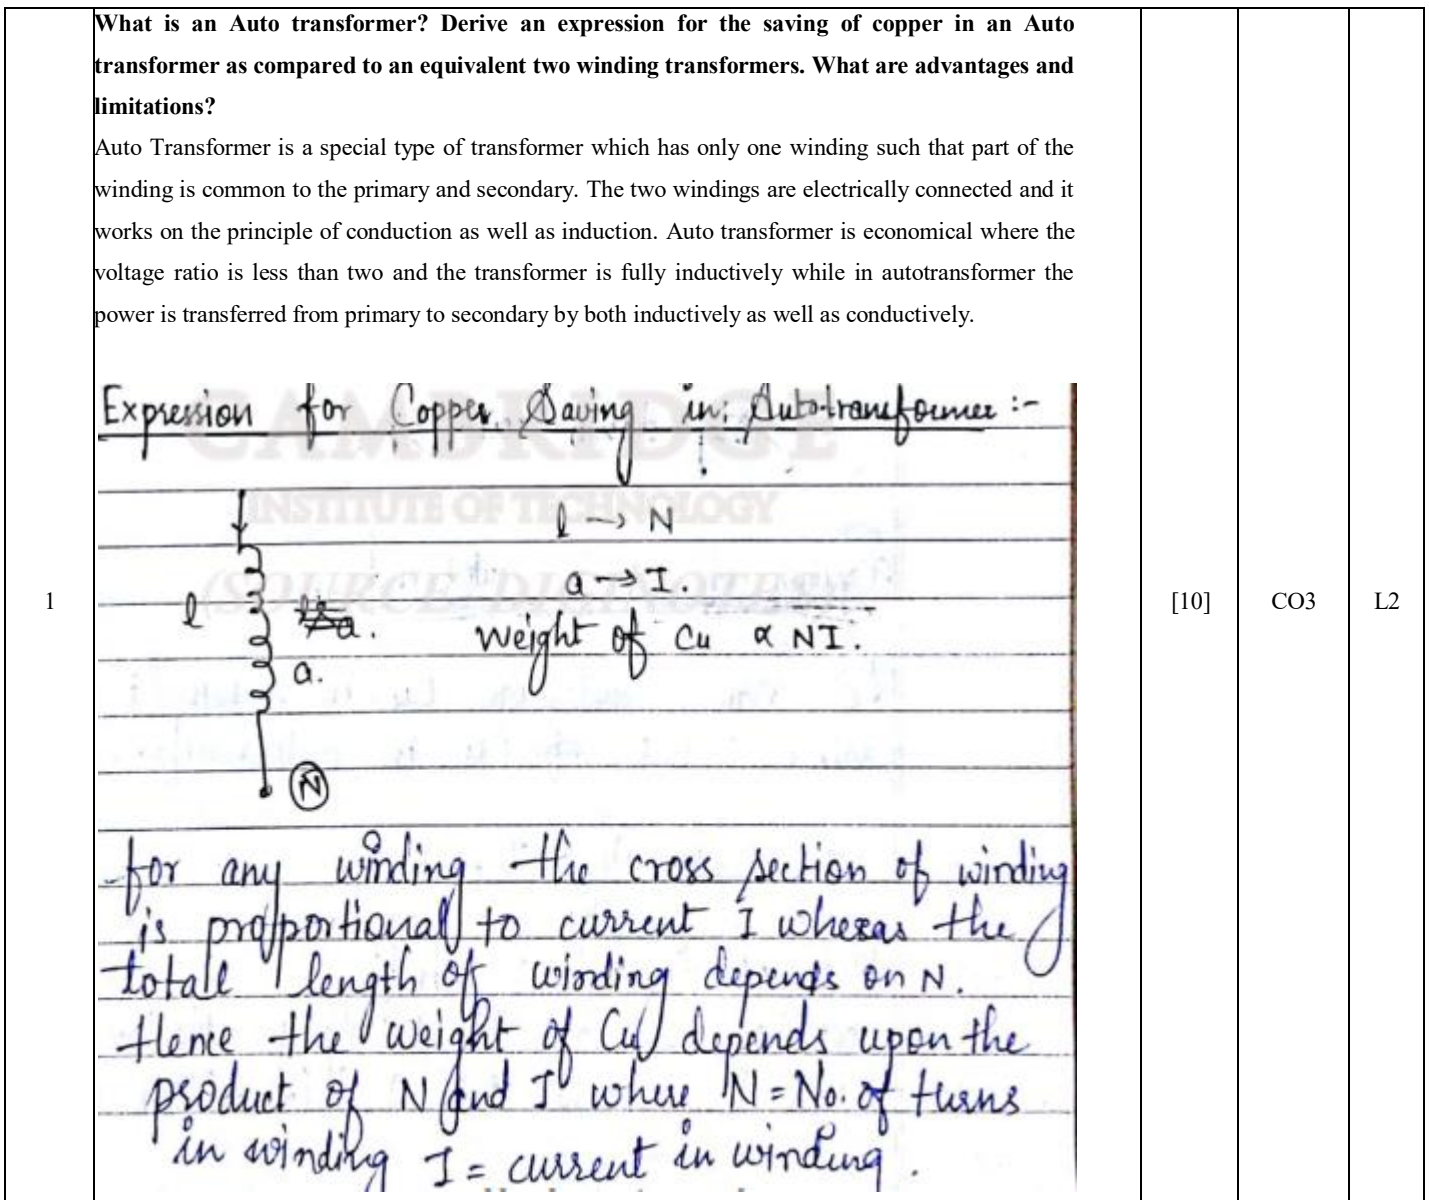 What is an Auto transformer? Derive an expression for the saving of copper in an Auto
transformer as compared to an equivalent two winding transformers. What are advantages and
limitations?
Auto Transformer is a special type of transformer which has only one winding such that part of the
winding is common to the primary and secondary. The two windings are electrically connected and it
works on the principle of conduction as well as induction. Auto transformer is economical where the
voltage ratio is less than two and the transformer is fully inductively while in autotransformer the
power is transferred from primary to secondary by both inductively as well as conductively.
Expression for Copper Saving in Autotransformer :-
CAMBRIDGE
INSTITUTE OF TECHNOLOGY
(SOURCE DIGINOTES)
l → N
a → I.
l
a.
Weight of Cu ∝ NI.
a.
N
1
[10]
CO3
L2
for any winding the cross section of winding
is proportional to current I wheras the
totall length of winding depends on N.
Hence the weight of Cu depends upon the
product of N and I where N = No. of turns
in winding I = current in winding.